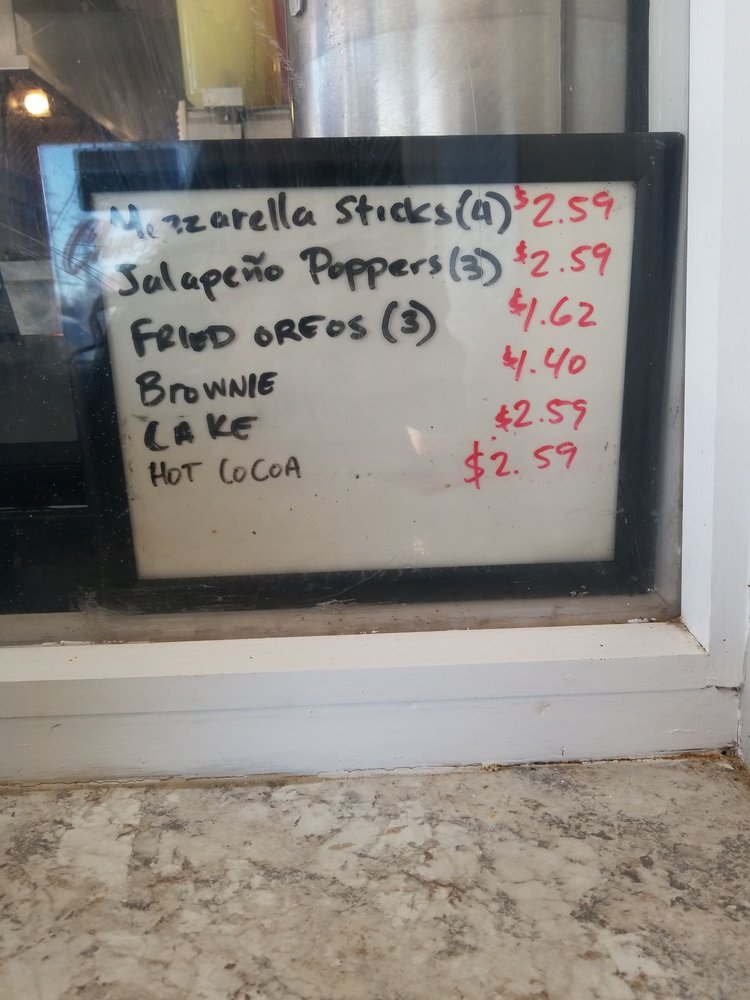 Mozzarella Sticks (4) $2.59
Jalapeño Poppers (3) $2.59
FRIED OREOS (3) $1.62
BROWNIE $1.40
CAKE $2.59
HOT COCOA $2.59